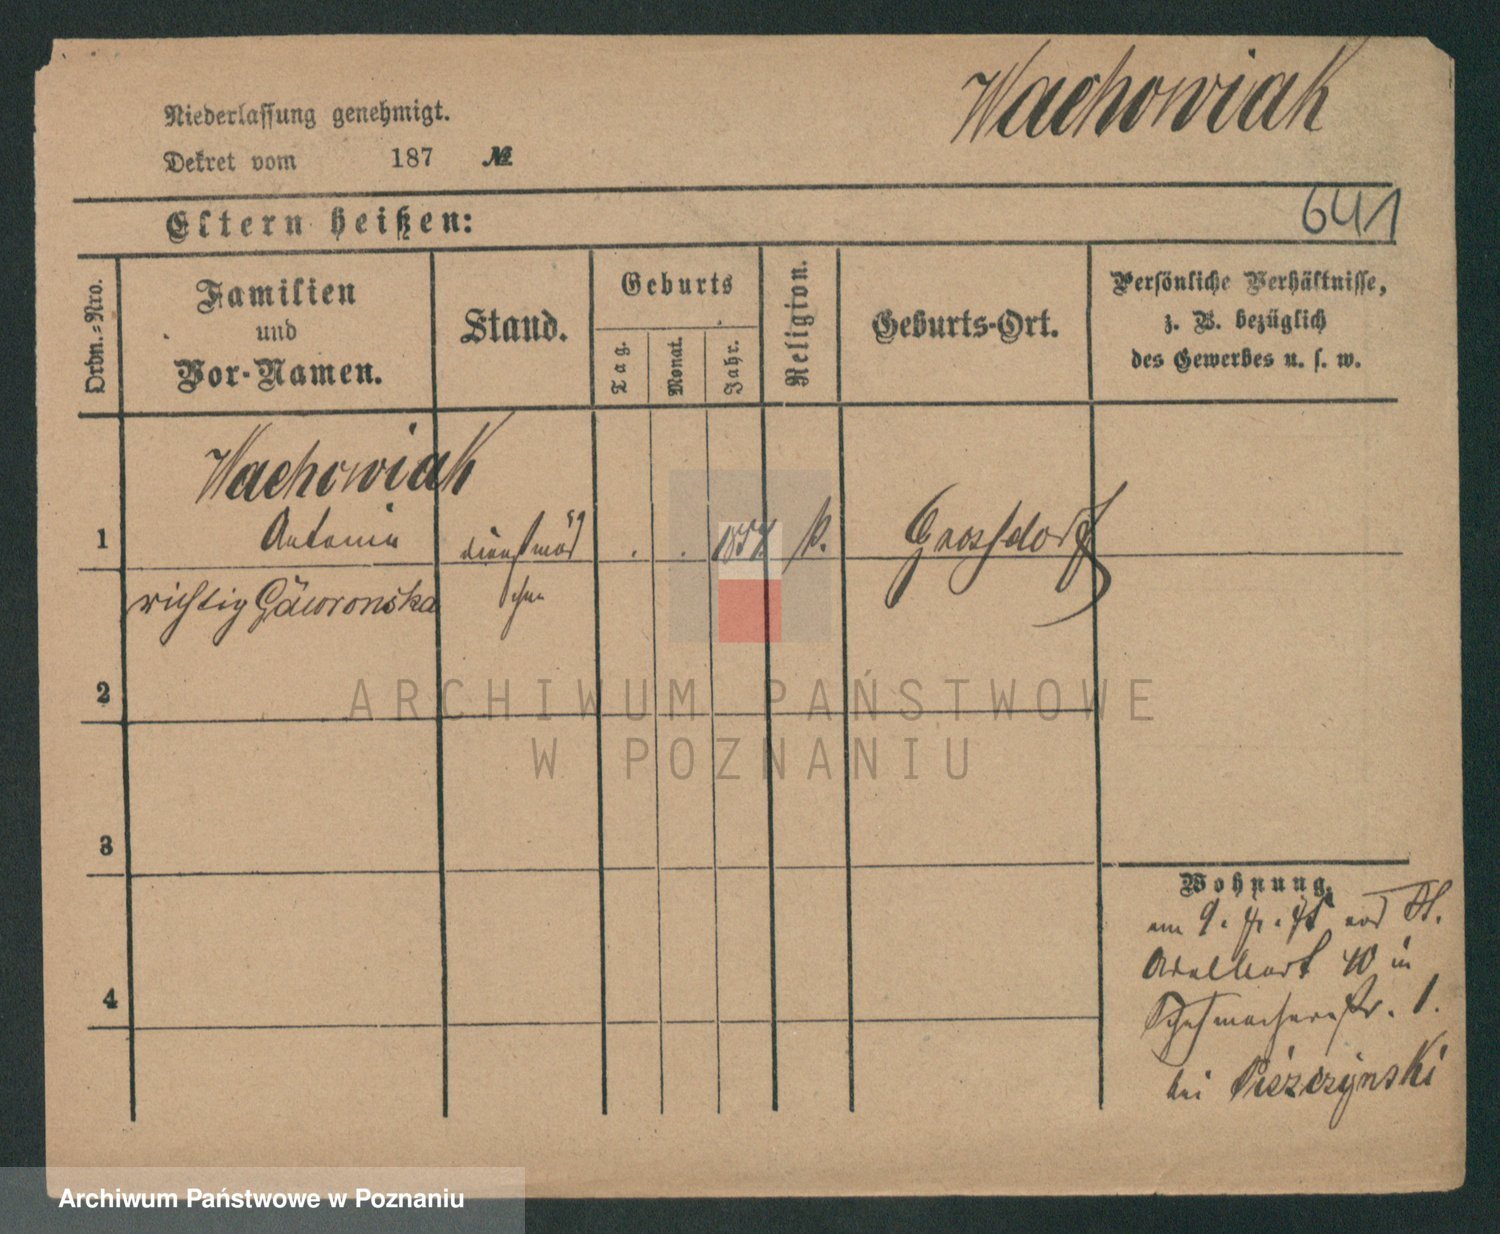 Wachowiak
Niederlassung genehmigt.
Dekret vom 187 №
Eltern heißen:
641
Ordn.-Nro.
Familien
und
Vor-Namen.
Stand.
Geburts
Tag.
Monat.
Jahr.
Religion.
Geburts-Ort.
Persönliche Verhältnisse,
z. B. bezüglich
des Gewerbes u. s. w.
Wachowiak
1 Antonie dienstmäd . . k. Grossdorf
richtig Gaworonska chen
2
ARCHIWUM PAŃSTWOWE
W POZNANIU
3
Wohnung.
am 9. St.
Adalbert 40 in
Schuhmacherstr. 1.
4
bei Piszczynski
Archiwum Państwowe w Poznaniu